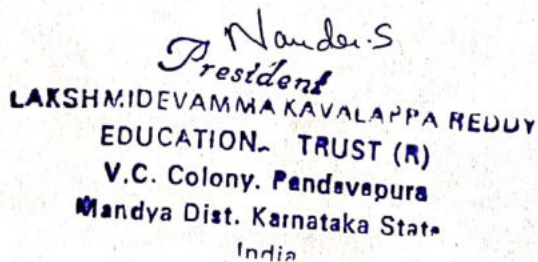 Nandu.S
President
LAKSHMIDEVAMMA KAVALAPPA REDDY
EDUCATION. TRUST (R)
V.C. Colony. Pandavapura
Mandya Dist. Karnataka State
India